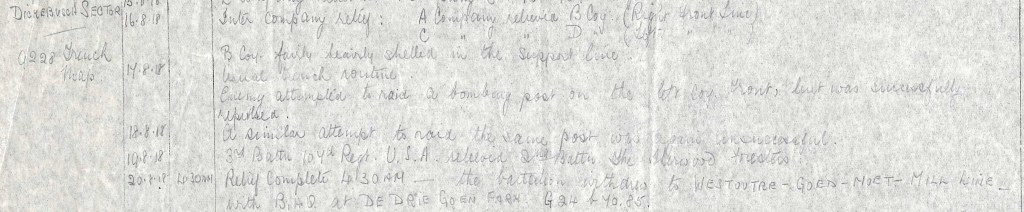 DICKEBUSCH SECTOR
16.8.18 Inter Company relief: A Company relieved B Coy. (Right Front Line)
C " " D " (Left " ")
9228 French Map
B Coy. fairly heavily shelled in the support line.
17.8.18 Usual trench routine.
Enemy attempted to raid a bombing post on the left Coy front, but was successfully
repulsed.
18.8.18 A similar attempt to raid the same post was again unsuccessful.
19.8.18 3rd Battn Regt. U.S.A. relieved 2nd Battn The Sherwood Foresters.
20.8.18 4.30AM Relief Complete 4.30AM — the battalion withdrew to WESTOUTRE - GOEN - MOET - MILL LINE -
with B.H.Q. at DE DRIE GOEN FARM G24 b 70.85.